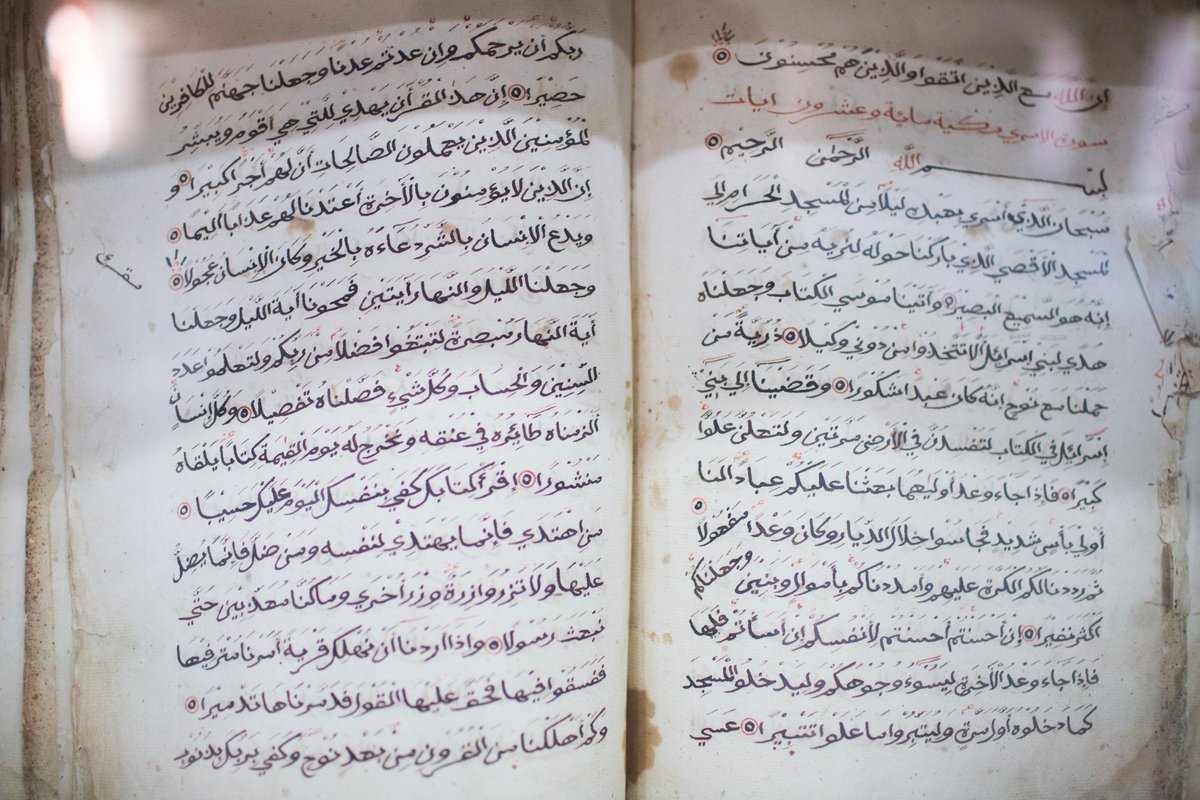 إن الله مع الذين اتقوا والذين هم محسنون
سورة الاسرى مكية مائة وعشرون ايات
بسم الله الرحمن الرحيم
سبحان الذي أسرى بعبده ليلا من المسجد الحرام إلى
المسجد الأقصى الذي باركنا حوله لنريه من آياتنا
إنه هو السميع البصير وآتينا موسى الكتاب وجعلناه
هدى لبني اسرائل الا تتخذوا من دوني وكيلا ذرية من
حملنا مع نوح انه كان عبدا شكورا وقضينا إلى بني
إسرائل في الكتاب لتفسدن في الأرض مرتين ولتعلن علوا
كبيرا فإذا جاء وعد أوليهما بعثنا عليكم عبادا لنا
أولي بأس شديد فجاسوا خلال الديار وكان وعدا مفعولا
ثم رددنا لكم الكرة عليهم وأمددناكم بأموال وبنين وجعلناكم
أكثر نفيرا إن أحسنتم أحسنتم لأنفسكم إن أسأتم فلها
فإذا جاء وعد الأخرة ليسوء وجوهكم وليدخلوا المسجد
كما دخلوه أول مرة وليتبروا ما علوا تتبيرا عسى
ربكم أن يرحمكم وإن عدتم عدنا وجعلنا جهنم للكافرين
حصيرا إن هذا القرآن يهدي للتي هي أقوم ويبشر
المؤمنين الذين يعملون الصالحات أن لهم أجرا كبيرا و
إن الذين لا يؤمنون بالأخرة أعتدنا لهم عذابا اليما
ويدع الإنسان بالشر دعاءه بالخير وكان الإنسان عجولا
وجعلنا الليل والنهار آيتين فمحونا آية الليل وجعلنا
آية النهار مبصرة لتبتغوا فضلا من ربكم ولتعلموا عدد
السنين والحساب وكل شيء فصلناه تفصيلا وكل إنسان
ألزمناه طائره في عنقه ونخرج له يوم القيمة كتابا يلقاه
منشورا إقرأ كتابك كفى بنفسك اليوم عليك حسيبا
من اهتدى فإنما يهتدي لنفسه ومن ضل فإنما يضل
عليها ولا تزر وازرة وزر أخرى وما كنا معذبين حتى
نبعث رسولا وإذا أردنا أن نهلك قرية أمرنا مترفيها
ففسقوا فيها فحق عليها القول فدمرناها تدميرا
وكم أهلكنا من القرون من بعد نوح وكفى بربك بذنوب